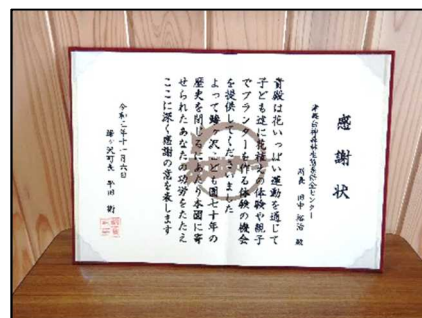 感謝状
津軽白神森林生態系保全センター
所長 田中 裕治 殿
貴殿は花いっぱい運動を通じて
子ども達に花植えの体験や親子
でプランターを作る体験の機会
を提供してくださいました
よって鰺ヶ沢こども園七十年の
歴史を閉じるにあたり本園に寄
せられたあなたの功労をたたえ
ここに深く感謝の意を表します
令和二年十一月六日
鰺ヶ沢町長 平田 衛